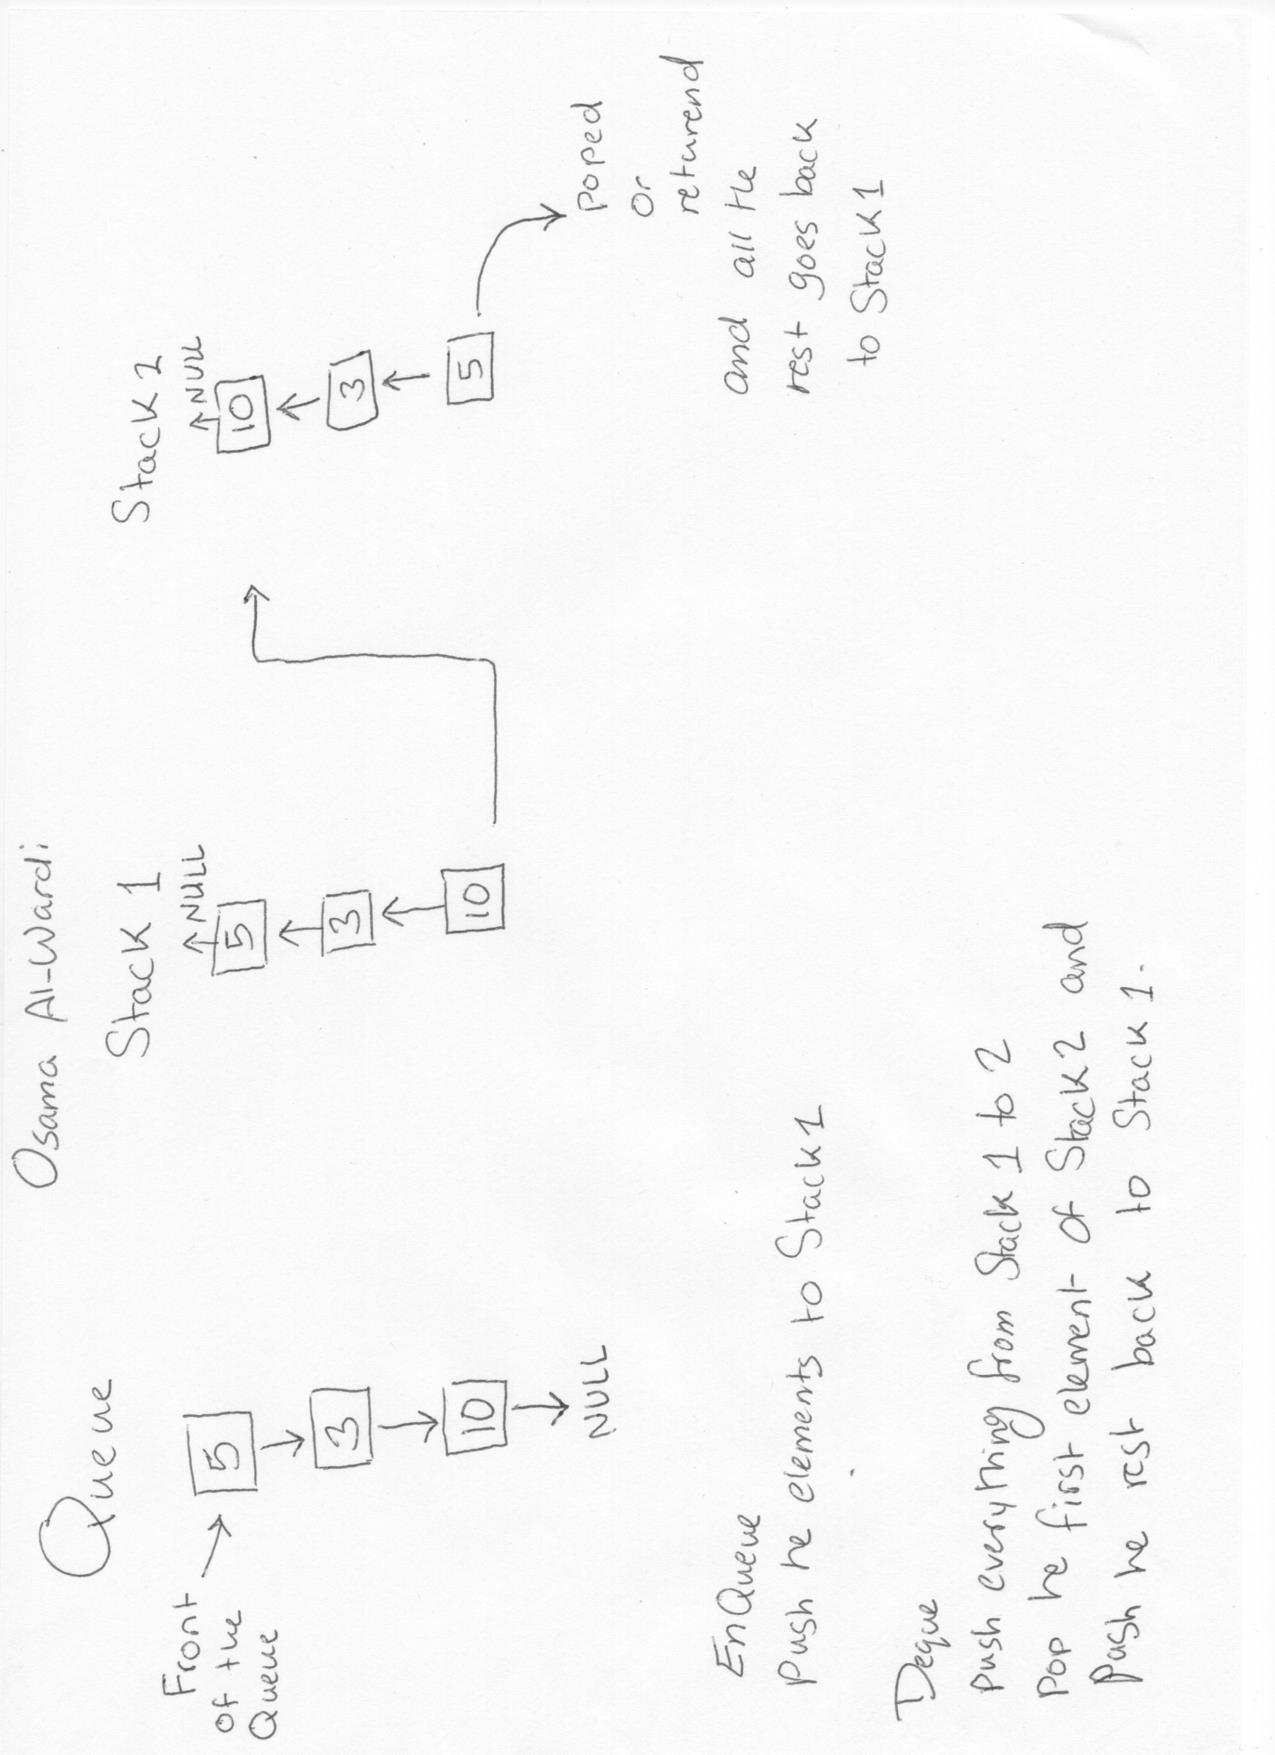 Osama Al-Wardi
Queue
Front
of the
Queue
5
3
10
NULL
Stack 1
NULL
5
3
10
Stack 2
NULL
10
3
5
Poped
Or
returend
and all the
rest goes back
to Stack 1
EnQueue
Push he elements to Stack 1
Deque
Push everything from Stack 1 to 2
Pop he first element of Stack 2 and
Push he rest back to Stack 1.